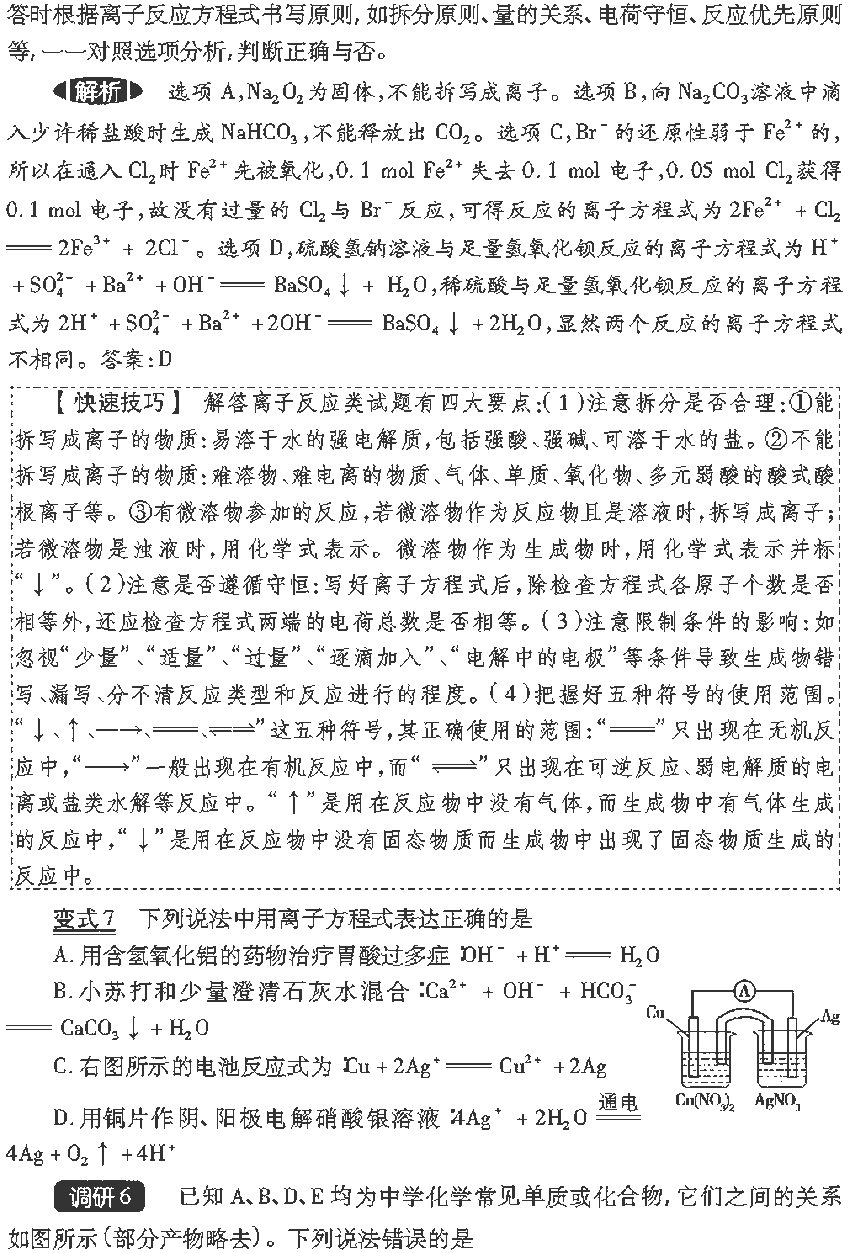 答时根据离子反应方程式书写原则,如拆分原则、量的关系、电荷守恒、反应优先原则
等,一一对照选项分析,判断正确与否。
解析 选项 A,Na₂O₂为固体,不能拆写成离子。选项 B,向 Na₂CO₃溶液中滴
入少许稀盐酸时生成 NaHCO₃,不能释放出 CO₂。选项 C,Br⁻的还原性弱于 Fe²⁺的,
所以在通入 Cl₂时 Fe²⁺先被氧化,0.1 mol Fe²⁺失去 0.1 mol 电子,0.05 mol Cl₂获得
0.1 mol 电子,故没有过量的 Cl₂与 Br⁻反应,可得反应的离子方程式为 2Fe²⁺ + Cl₂
══ 2Fe³⁺ + 2Cl⁻。选项 D,硫酸氢钠溶液与足量氢氧化钡反应的离子方程式为 H⁺
+ SO₄²⁻ + Ba²⁺ + OH⁻ ══ BaSO₄↓ + H₂O,稀硫酸与足量氢氧化钡反应的离子方程
式为 2H⁺ + SO₄²⁻ + Ba²⁺ + 2OH⁻ ══ BaSO₄↓ + 2H₂O,显然两个反应的离子方程式
不相同。答案:D
【快速技巧】 解答离子反应类试题有四大要点:(1)注意拆分是否合理:①能
拆写成离子的物质:易溶于水的强电解质,包括强酸、强碱、可溶于水的盐。②不能
拆写成离子的物质:难溶物、难电离的物质、气体、单质、氧化物、多元弱酸的酸式酸
根离子等。③有微溶物参加的反应,若微溶物作为反应物且是溶液时,拆写成离子;
若微溶物是浊液时,用化学式表示。微溶物作为生成物时,用化学式表示并标
“↓”。(2)注意是否遵循守恒:写好离子方程式后,除检查方程式各原子个数是否
相等外,还应检查方程式两端的电荷总数是否相等。(3)注意限制条件的影响:如
忽视“少量”、“适量”、“过量”、“逐滴加入”、“电解中的电极”等条件导致生成物错
写、漏写、分不清反应类型和反应进行的程度。(4)把握好五种符号的使用范围。
“↓、↑、—→、══、⇌”这五种符号,其正确使用的范围:“══”只出现在无机反
应中,“—→”一般出现在有机反应中,而“⇌”只出现在可逆反应、弱电解质的电
离或盐类水解等反应中。“↑”是用在反应物中没有气体,而生成物中有气体生成
的反应中,“↓”是用在反应物中没有固态物质而生成物中出现了固态物质生成的
反应中。
变式7 下列说法中用离子方程式表达正确的是
A. 用含氢氧化铝的药物治疗胃酸过多症:OH⁻ + H⁺ ══ H₂O
B. 小苏打和少量澄清石灰水混合:Ca²⁺ + OH⁻ + HCO₃⁻
══ CaCO₃↓ + H₂O
C. 右图所示的电池反应式为:Cu + 2Ag⁺ ══ Cu²⁺ + 2Ag
A
Cu
Ag
Cu(NO₃)₂ AgNO₃
D. 用铜片作阴、阳极电解硝酸银溶液:4Ag⁺ + 2H₂O ══通电
4Ag + O₂↑ + 4H⁺
调研6 已知 A、B、D、E 均为中学化学常见单质或化合物,它们之间的关系
如图所示(部分产物略去)。下列说法错误的是